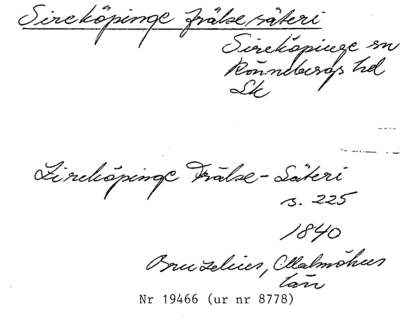 Sireköpinge frälse/säteri
Sireköpinge sn
Rönnebergs hd
Sk
Zireköpinge Frälse-Säteri
s. 225
1840
Bruzelius, Malmöhus
län
Nr 19466 (ur nr 8778)